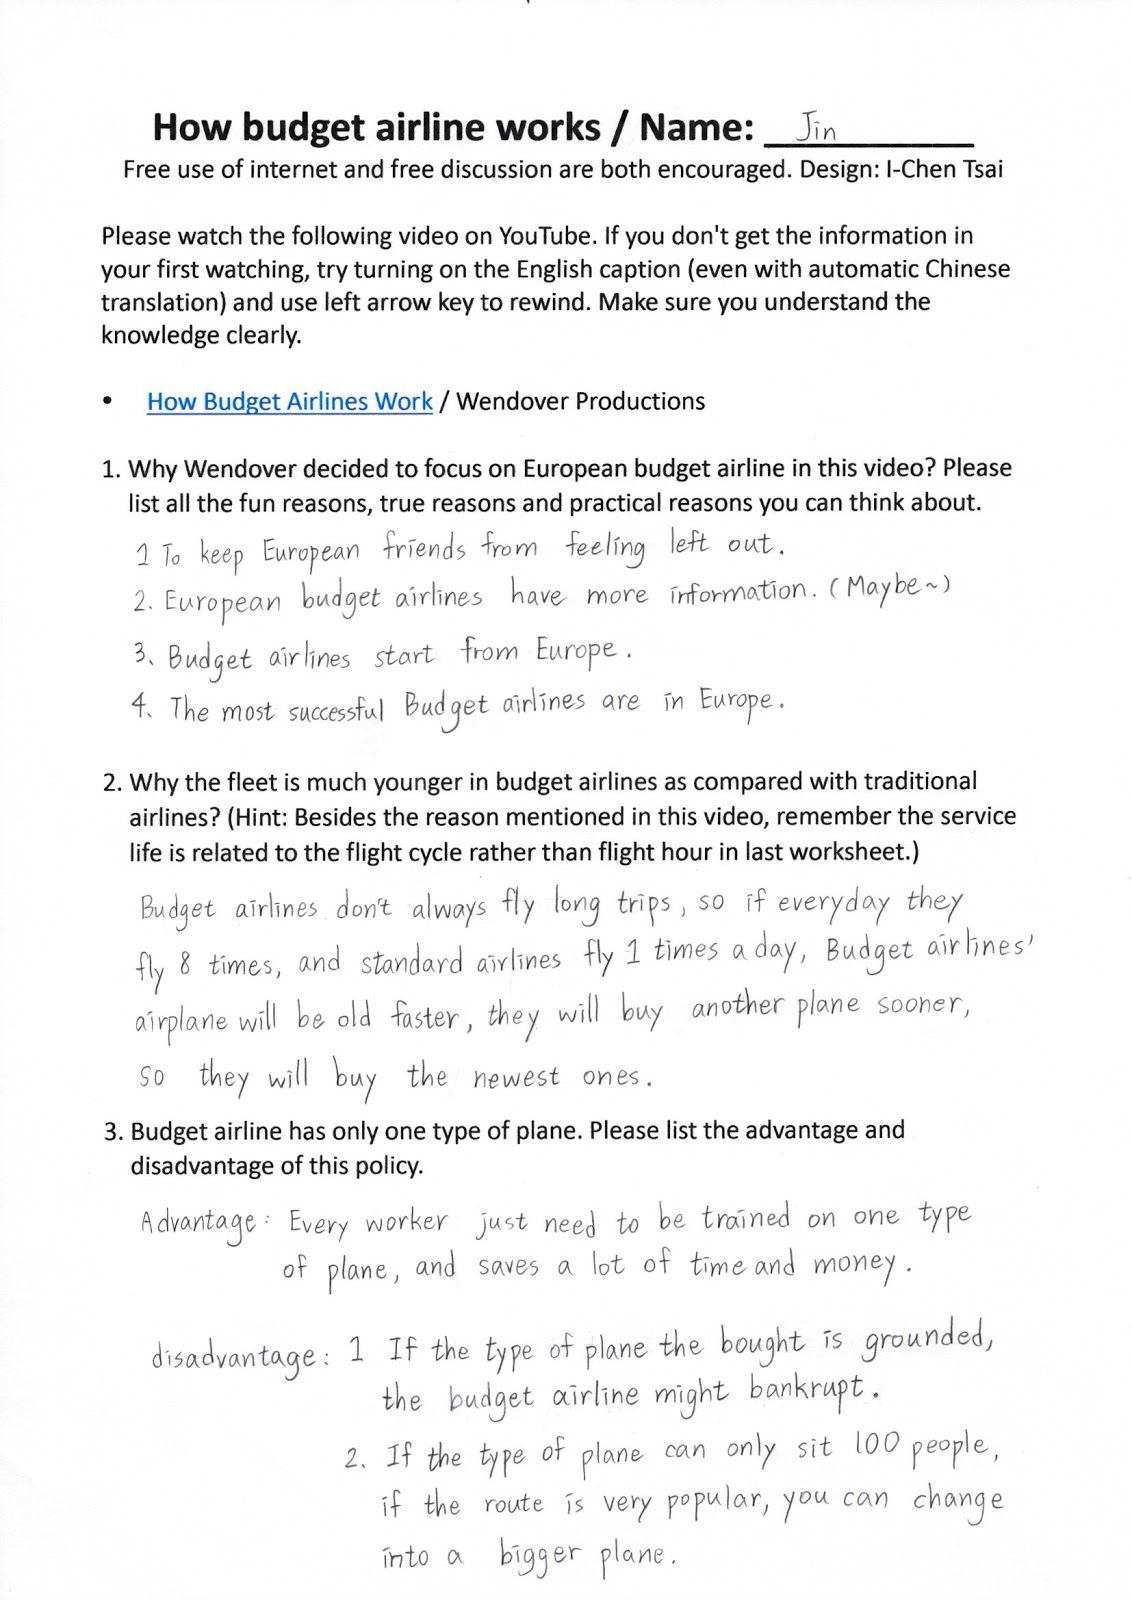 How budget airline works / Name: Jin
Free use of internet and free discussion are both encouraged. Design: I-Chen Tsai
Please watch the following video on YouTube. If you don't get the information in
your first watching, try turning on the English caption (even with automatic Chinese
translation) and use left arrow key to rewind. Make sure you understand the
knowledge clearly.
• How Budget Airlines Work / Wendover Productions
1. Why Wendover decided to focus on European budget airline in this video? Please
list all the fun reasons, true reasons and practical reasons you can think about.
1 To keep European friends from feeling left out.
2. European budget airlines have more information. (Maybe~)
3. Budget airlines start from Europe.
4. The most successful Budget airlines are in Europe.
2. Why the fleet is much younger in budget airlines as compared with traditional
airlines? (Hint: Besides the reason mentioned in this video, remember the service
life is related to the flight cycle rather than flight hour in last worksheet.)
Budget airlines don't always fly long trips, so if everyday they
fly 8 times, and standard airlines fly 1 times a day, Budget airlines'
airplane will be old faster, they will buy another plane sooner,
so they will buy the newest ones.
3. Budget airline has only one type of plane. Please list the advantage and
disadvantage of this policy.
Advantage: Every worker just need to be trained on one type
of plane, and saves a lot of time and money.
disadvantage: 1 If the type of plane the bought is grounded,
the budget airline might bankrupt.
2. If the type of plane can only sit 100 people,
if the route is very popular, you can change
into a bigger plane.